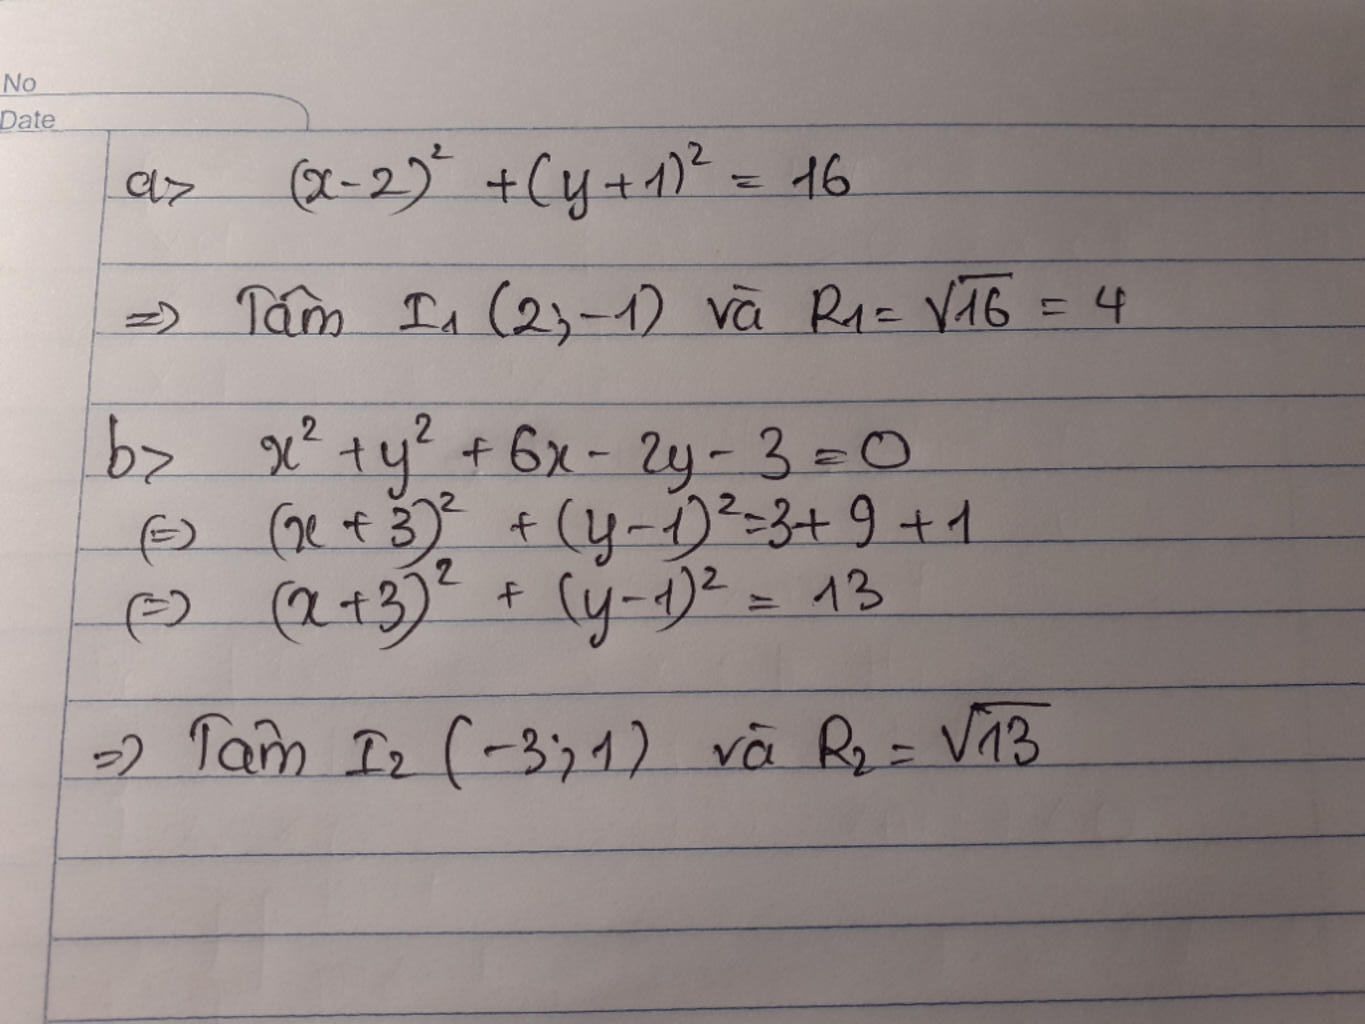 No
Date
a> (x-2)² + (y+1)² = 16
=> Tâm I₁ (2;-1) và R₁ = √16 = 4
b> x² + y² + 6x - 2y - 3 = 0
(=) (x+3)² + (y-1)² = 3+9+1
(=) (x+3)² + (y-1)² = 13
=> Tâm I₂ (-3;1) và R₂ = √13